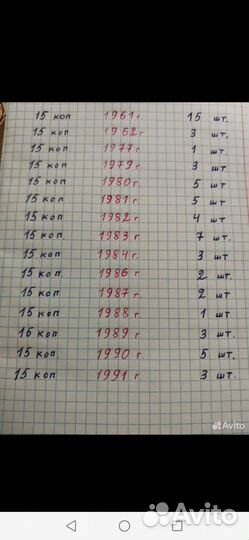 15 коп 1961 г. 15 шт.
15 коп 1962 г 3 шт.
15 коп 1977 г 1 шт.
15 коп 1979 г. 3 шт.
15 коп 1980 г. 5 шт
15 коп 1981 г 5 шт
15 коп 1982 г 4 шт
15 коп. 1983 г 7 шт.
15 коп 1984 г. 3 шт
15 коп 1986 г. 2 шт.
15 коп 1987 г. 2 шт
15 коп 1988 г. 1 шт
16 коп 1989 г. 3 шт.
15 коп. 1990 г. 5 шт.
15 коп 1991 г. 3 шт
Avito
Avito